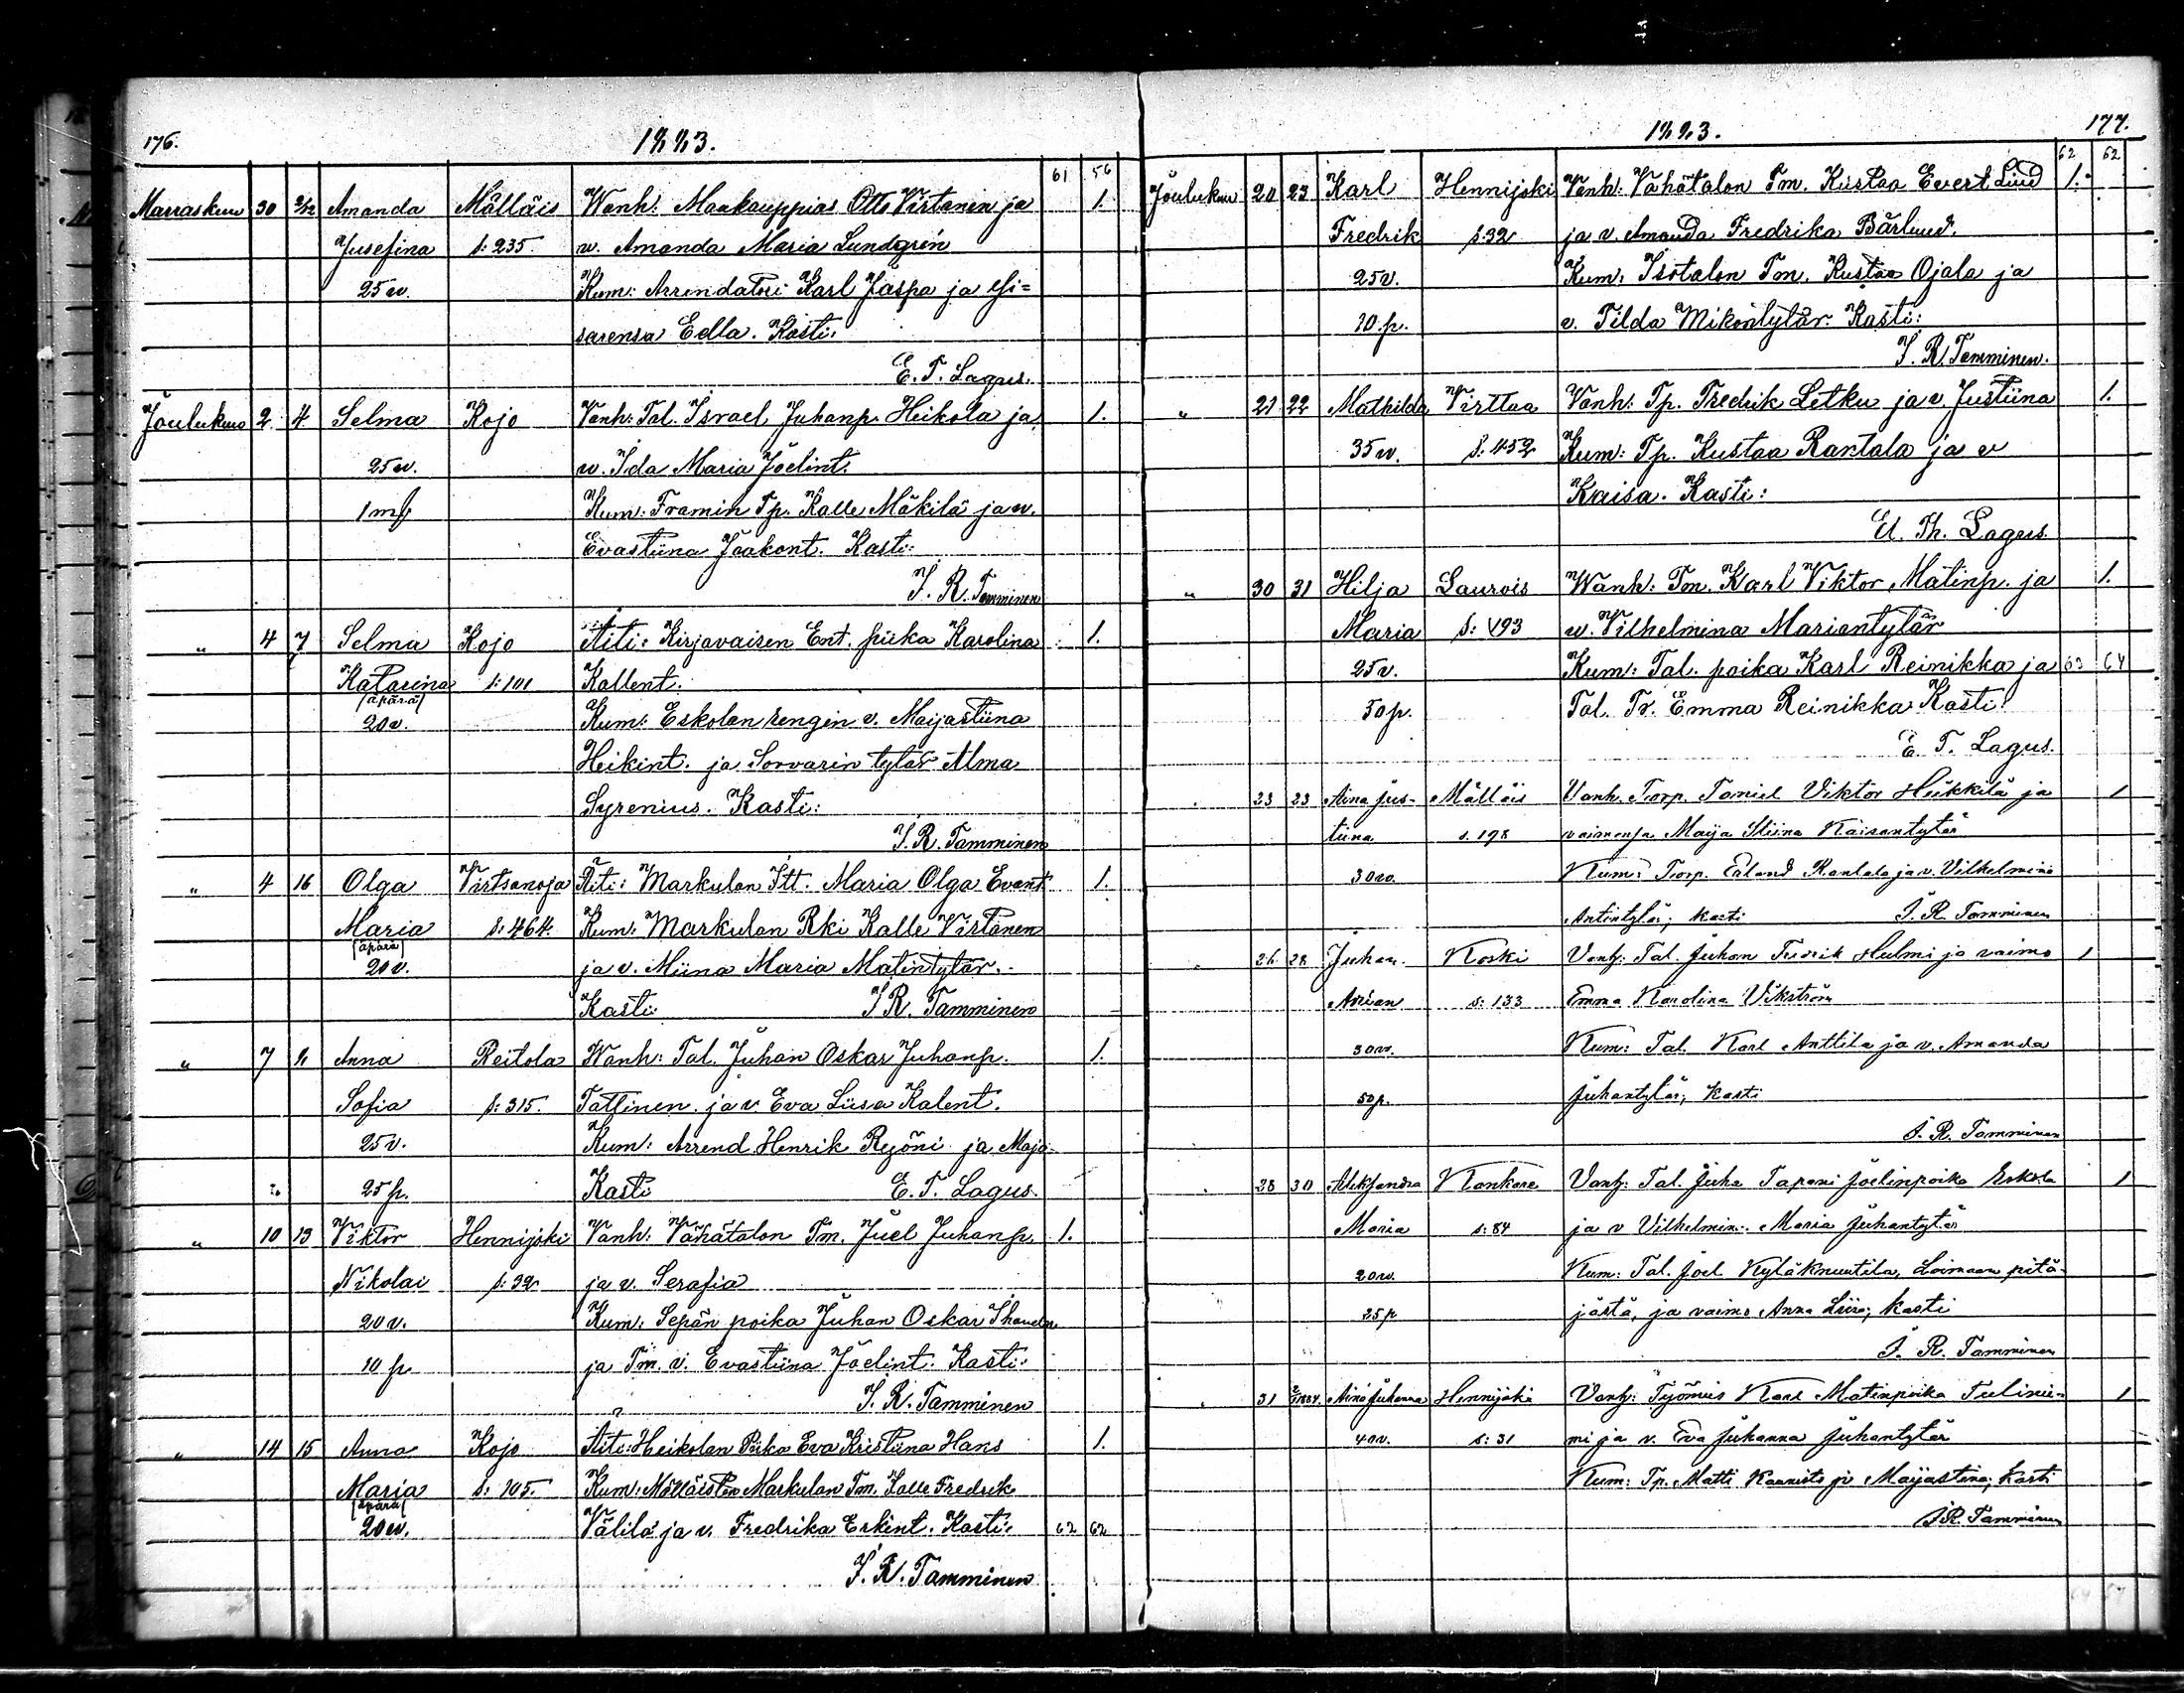 176.
1883.
61 56
Marraskuu 30 2/12 Amanda Mälläis Wanh: Maakauppias Otto Virtanen ja 1.
Jusefina s: 235. w. Amanda Maria Lundgrén
25 w. Kum: Arrendatori Karl Jaspa ja
sarensa Edla. Kasti:
E. T. Lagus.
Joulukuu 2 4 Selma Kojo Vanh: Tal. Israel Juhanp. Heikola ja 1.
25 w. w. Ida Maria Joelint.
1 mk Kum: Framin Tp. Kalle Mäkilä ja w.
Evastiina Jaakont. Kasti:
J. R. Tamminen
" 4 7 Selma Kojo Äiti: Kirjavaisen Ent. piika Karolina 1.
Katarina s: 101 Kallent.
(äpärä)
20 v. Kum: Eskolan rengin v. Maijastiina
Heikint. ja Sorvarin tytär Alma
Syrenius. Kasti:
J. R. Tamminen
" 4 16 Olga Virtsanoja Äiti: Markulan Itt. Maria Olga Evant. 1.
Maria s: 464. Kum: Markulan Rki Kalle Virtanen
(äpärä)
20 v. ja v. Miina Maria Matintytär.
Kasti: J. R. Tamminen
" 7 8 Anna Reitola Wanh: Tal. Juhan Oskar Juhanp. 1.
Sofia s: 315. Tattinen ja v. Eva Liisa Kalent.
25 v. Kum: Arrend. Henrik Rejöni ja Maja
25 p. Kasti E. T. Lagus.
" 10 13 Viktor Hennijoki Vanh: Vähätalon Tm. Juel Juhanp. 1.
Nikolai s: 32 ja v. Serafia
20 v. Kum: Sepän poika Juhan Oskar
10 p. ja Tm. v. Evastiina Joelint. Kasti:
J. R. Tamminen
" 14 15 Anna Kojo Äiti: Heikolan Piika Eva Kristiina Hans 1.
Maria s: 105. Kum: Mälläisten Markulan Tm. Kalle Fredrik
(äpärä)
20 w. Välilä ja v. Fredrika Erkint. Kasti: 62 62
J. R. Tamminen
1883.
177.
62 62
Joulukuu 20 23 Karl Hennijoki Vanh: Vähätalon Tm. Kustaa Evert Lind 1.
Fredrik s: 32 ja v. Amanda Fredrika Bärlund.
25 v. Kum: Isotalon Tm. Kustaa Ojala ja
10 p. v. Tilda Mikontytär. Kasti:
J. R. Tamminen.
" 21 22 Mathilda Virttaa Vanh: Tp. Fredrik Letku ja v. Justiina 1.
35 w. s: 452 Kum: Tp. Kustaa Rantala ja v
Kaisa. Kasti:
El. Th. Lagus.
" 30 31 Hilja Laurois Wanh: Tm. Karl Viktor Matinp. ja 1.
Maria s: 193 w. Vilhelmina Mariantytär
25 v. Kum: Tal. poika Karl Reinikka ja 63 64
50 p. Tal. Tr. Emma Reinikka Kasti:
E. T. Lagus.
" 23 23 Aina Jus- Mälläis Vanh. Torp. Taniel Viktor Heikkilä ja 1
tiina s. 198 vaimonsa Maija Stiina Kaisantytär
30 w. Kum: Torp. Erland Rantala ja v. Vilhelmina
Antintytär; kasti J. R. Tamminen
" 26 28 Juhan Koski Vanh: Tal. Juhan Fredrik Helmi ja vaimo 1
Adrian s: 133 Emma Karolina Vikström
30 w. Kum: Tal. Karl Anttila ja v. Amanda
50 p. Juhantytär; kasti
J. R. Tamminen
" 28 30 Aleksandra Kankare Vanh: Tal. Juha Tapani Joelinpoika Eskola 1
Maria s: 84 ja v Vilhelmina Maria Juhantytär
20 w. Kum: Tal. Joel Kyläknuutila, Loimaan pitä-
25 p jästä, ja vaimo Anna Liisa; kasti
J. R. Tamminen
" 31 Aina Juhanna Hennijoki Vanh: Työmies Karl Matinpoika Tulinie- 1
40 v. s: 31 mi ja v. Eva Juhanna Juhantytär
Kum: Tp. Matti Kaunisto ja Maijastina; kasti
J R. Tamminen
64 67